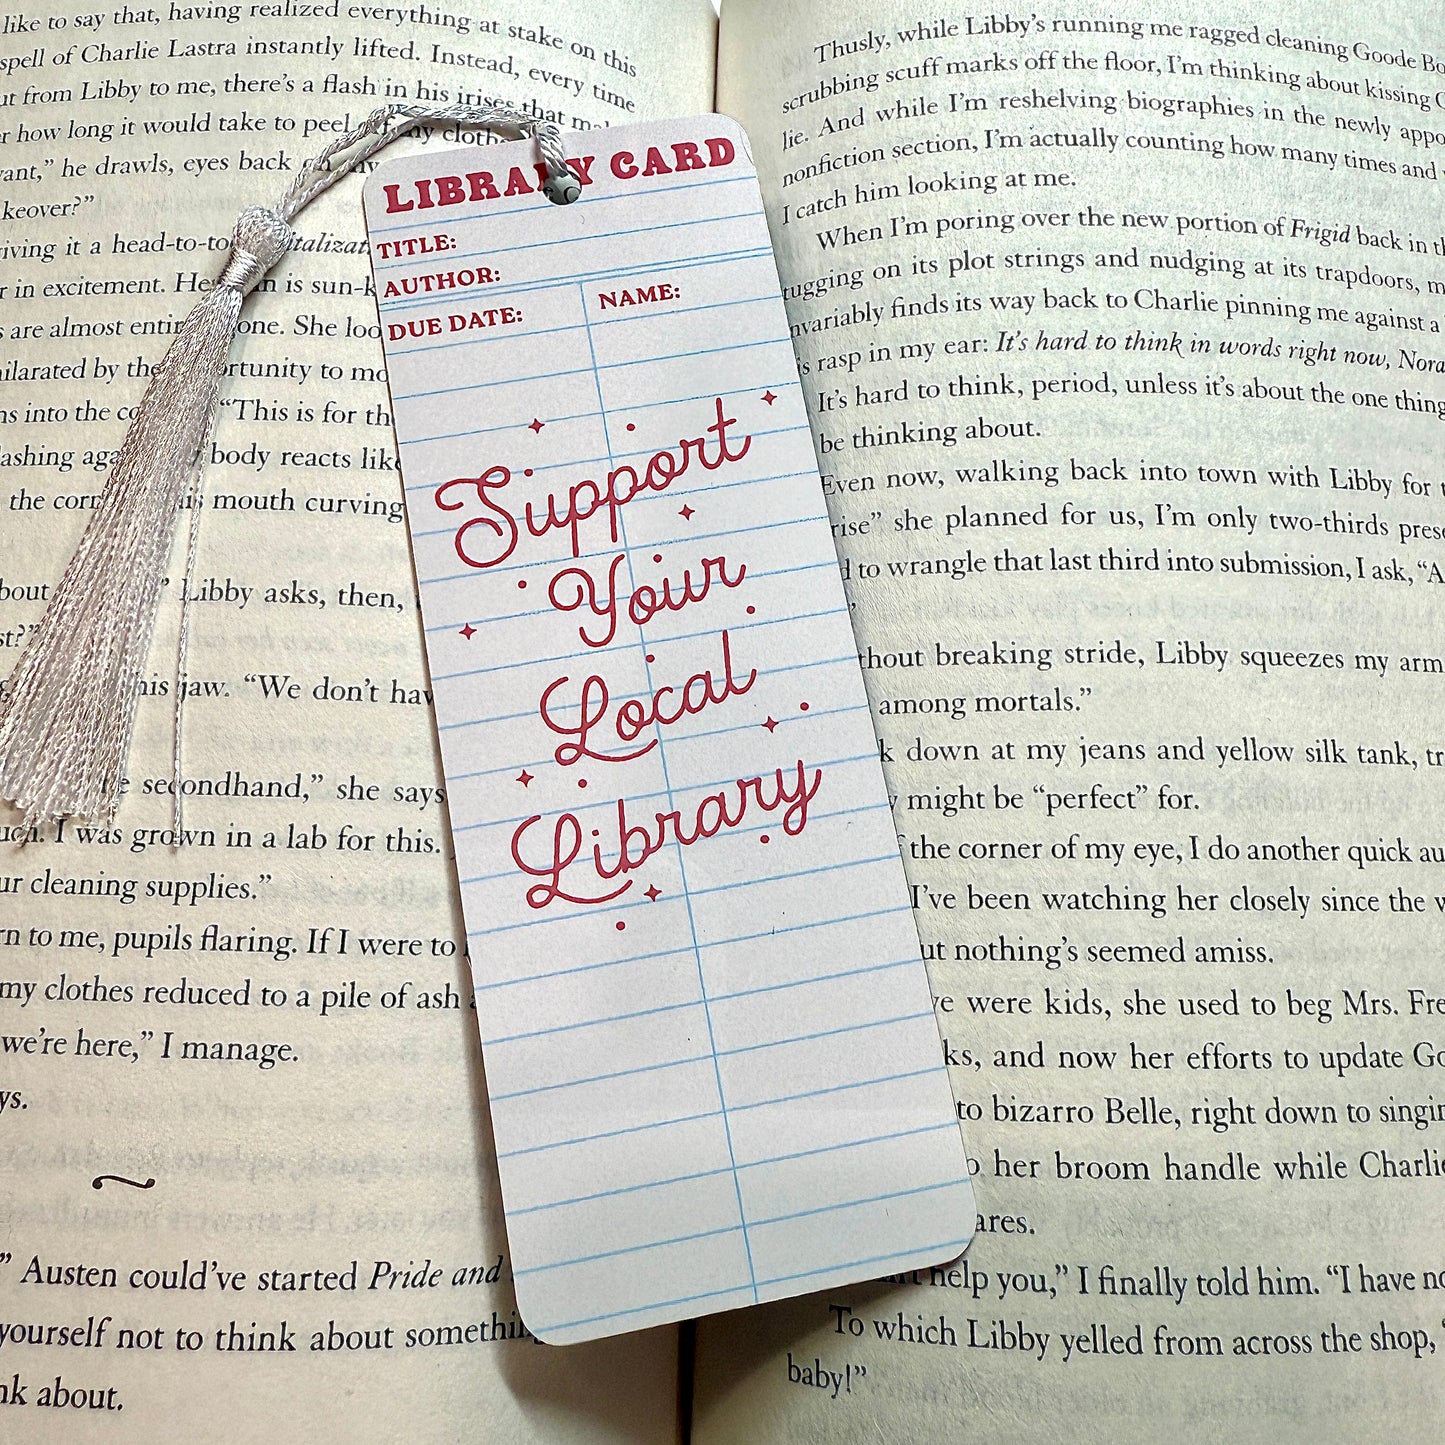 like to say that, having realized everything at stake on this
spell of Charlie Lastra instantly lifted. Instead, every time
from Libby to me, there's a flash in his irises that
how long it would take to peel my
he drawls, eyes back
keover?"
it a head-to-to
in excitement. is sun-k
are almost one. She loo
by the to mo
into the "This is for th
body reacts like
the mouth curving
Libby asks, then,
jaw. "We don't hav
secondhand," she says
I was grown in a lab for this.
cleaning supplies."
to me, pupils flaring. If I were to
my clothes reduced to a pile of ash
we're here," I manage.
ys.
" Austen could've started Pride and
yourself not to think about
about.
LIBRARY CARD
TITLE:
AUTHOR:
DUE DATE: NAME:
Support
Your
Local
Library
Thusly, while Libby's running me ragged cleaning Goode Bo
scrubbing scuff marks off the floor, I'm thinking about kissing
lie. And while I'm reshelving biographies in the newly appo
nonfiction section, I'm actually counting how many times and
I catch him looking at me.
When I'm poring over the new portion of Frigid back in th
tugging on its plot strings and nudging at its trapdoors, m
nvariably finds its way back to Charlie pinning me against a
rasp in my ear: It's hard to think in words right now, Nora
It's hard to think, period, unless it's about the one thing
be thinking about.
Even now, walking back into town with Libby for
rise" she planned for us, I'm only two-thirds prese
to wrangle that last third into submission, I ask, "A
thout breaking stride, Libby squeezes my arm
among mortals."
down at my jeans and yellow silk tank, tr
might be "perfect" for.
the corner of my eye, I do another quick au
I've been watching her closely since the w
ut nothing's seemed amiss.
were kids, she used to beg Mrs. Fre
ks, and now her efforts to update Go
to bizarro Belle, right down to singin
her broom handle while Charlie
ares.
help you," I finally told him. "I have no
To which Libby yelled from across the shop, "
baby!"